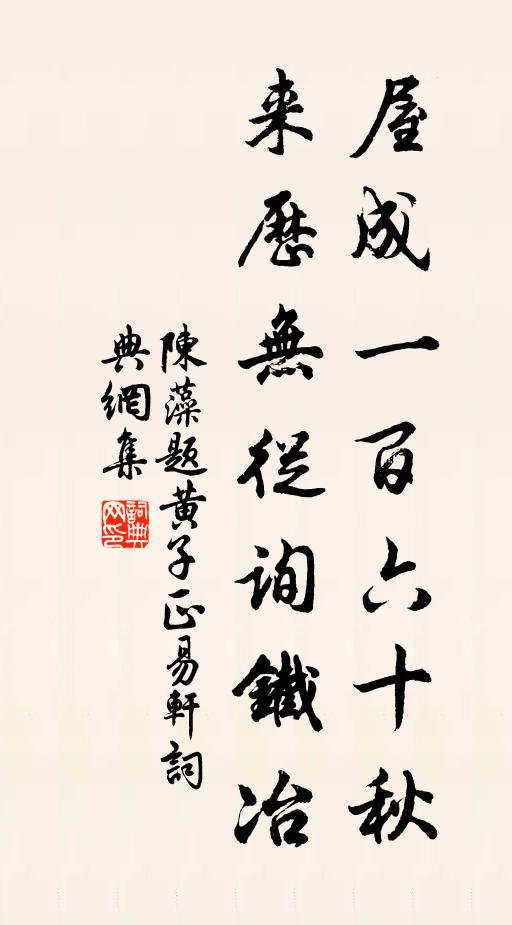 屋成一百六十秋
来歷無從詢鐵冶
陳藻題黃子正易軒詞
典網集
詞典网印